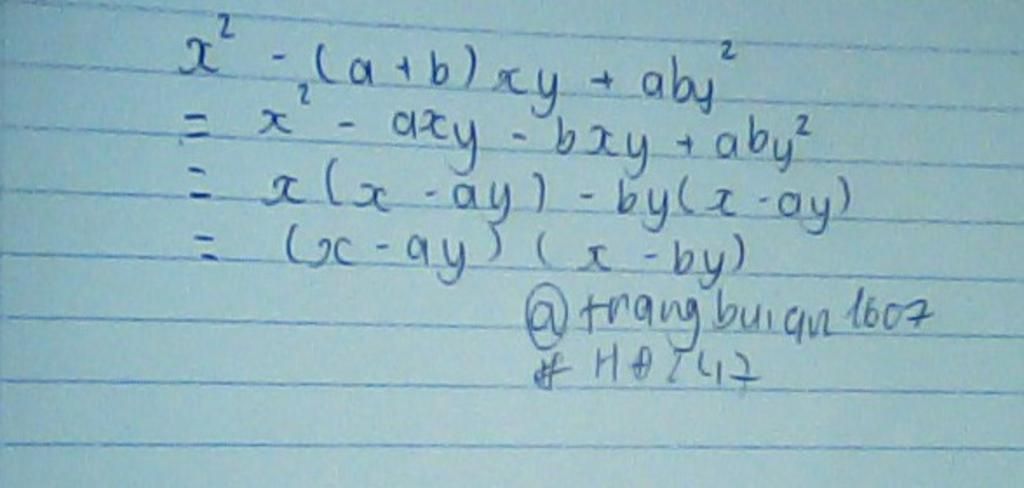 x² - (a+b)xy + aby²
= x² - axy - bxy + aby²
= x(x - ay) - by(x - ay)
= (x - ay) (x - by)
@trangbuian1607
#